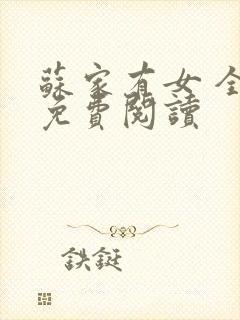 蘇家有女全
免費閱讀
鉄鋌